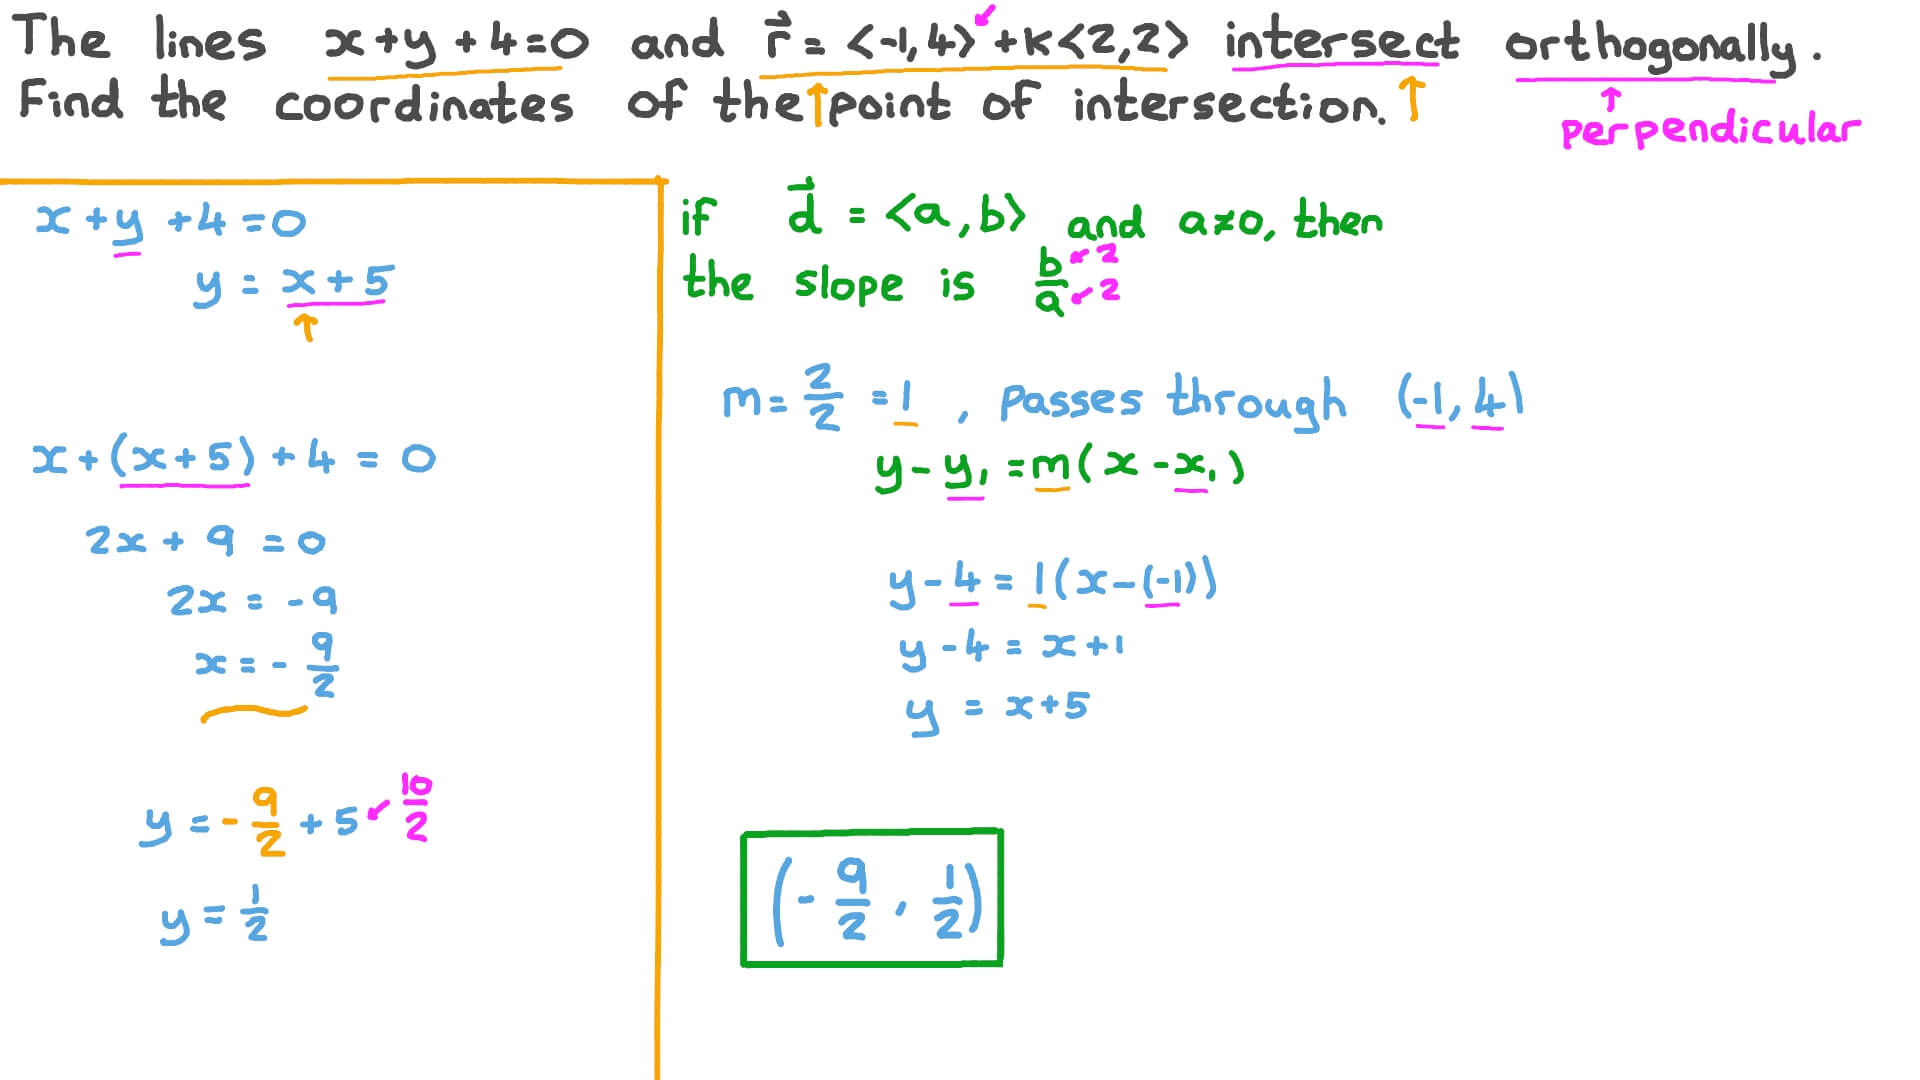 The lines x+y+4=0 and r⃗ = <-1,4> + k<2,2> intersect orthogonally.
Find the coordinates of the point of intersection.
perpendicular
x+y+4=0
y = x+5
x+(x+5)+4 = 0
2x + 9 = 0
2x = -9
x = - 9/2
y = - 9/2 + 5 10/2
y = 1/2
if d⃗ = <a,b> and a≠0, then
the slope is b/a 2 2
m = 2/2 = 1 , passes through (-1,4)
y - y₁ = m(x - x₁)
y - 4 = 1(x-(-1))
y - 4 = x+1
y = x+5
(- 9/2 , 1/2)